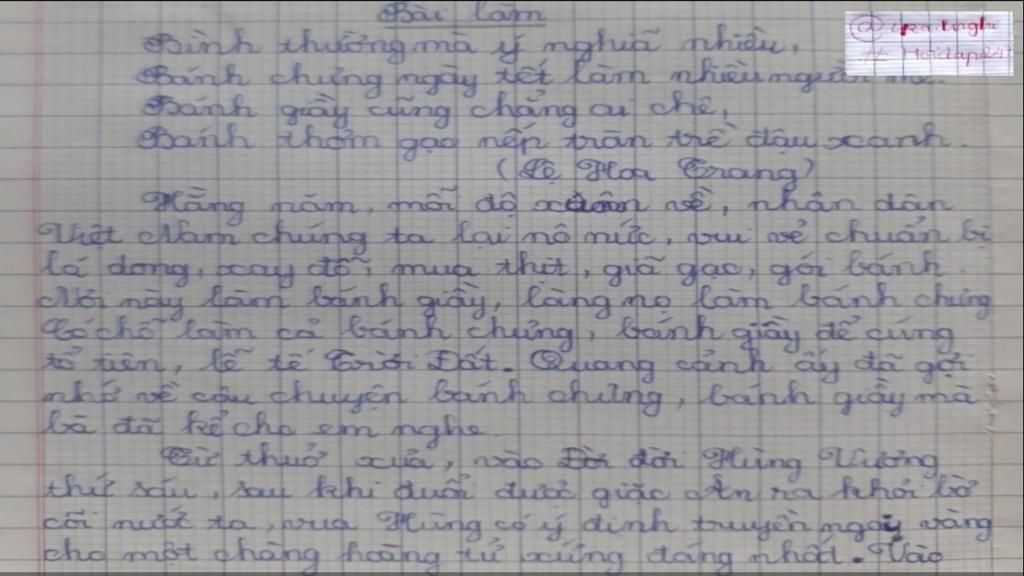 Bài làm
Bình thường mà ý nghĩa nhiều,
Bánh chưng ngày tết làm nhiều người
Bánh giầy cũng chẳng ai chê,
Bánh thơm gạo nếp tràn trề đậu xanh.
(Lệ Hoa Trang)
Hằng năm, mỗi độ xuân về, nhân dân
Việt Nam chúng ta lại nô nức, vui vẻ chuẩn bị
lá dong, xay đỗ, mua thịt, giã gạo, gói bánh.
Nơi này làm bánh giầy, làng nọ làm bánh chưng
Có chỗ làm cả bánh chưng, bánh giầy để cúng
tổ tiên, lễ tế Trời Đất. Quang cảnh ấy đã gợi
nhớ về câu chuyện bánh chưng, bánh giầy mà
bà đã kể cho em nghe.
Từ thuở xưa, vào đời Hùng Vương
thứ sáu, sau khi đuổi được giặc Ân ra khỏi bờ
cõi nước ta, vua Hùng có ý định truyền ngay vàng
cho một chàng hoàng tử xứng đáng nhất. Vào